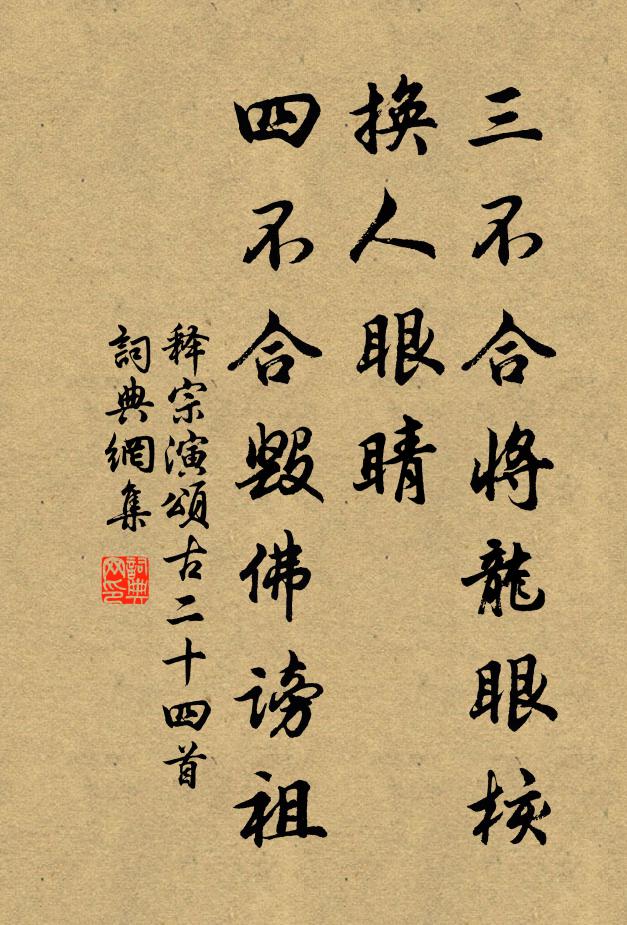 三不合將龍眼核
換人眼睛
四不合毀佛謗祖
释宗演頌古二十四首
詞典網集
詞典網印